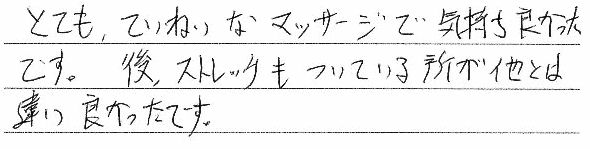 とても、ていねいなマッサージで気持ち良かった
です。後、ストレッチもついている所が他とは
違い良かったです。